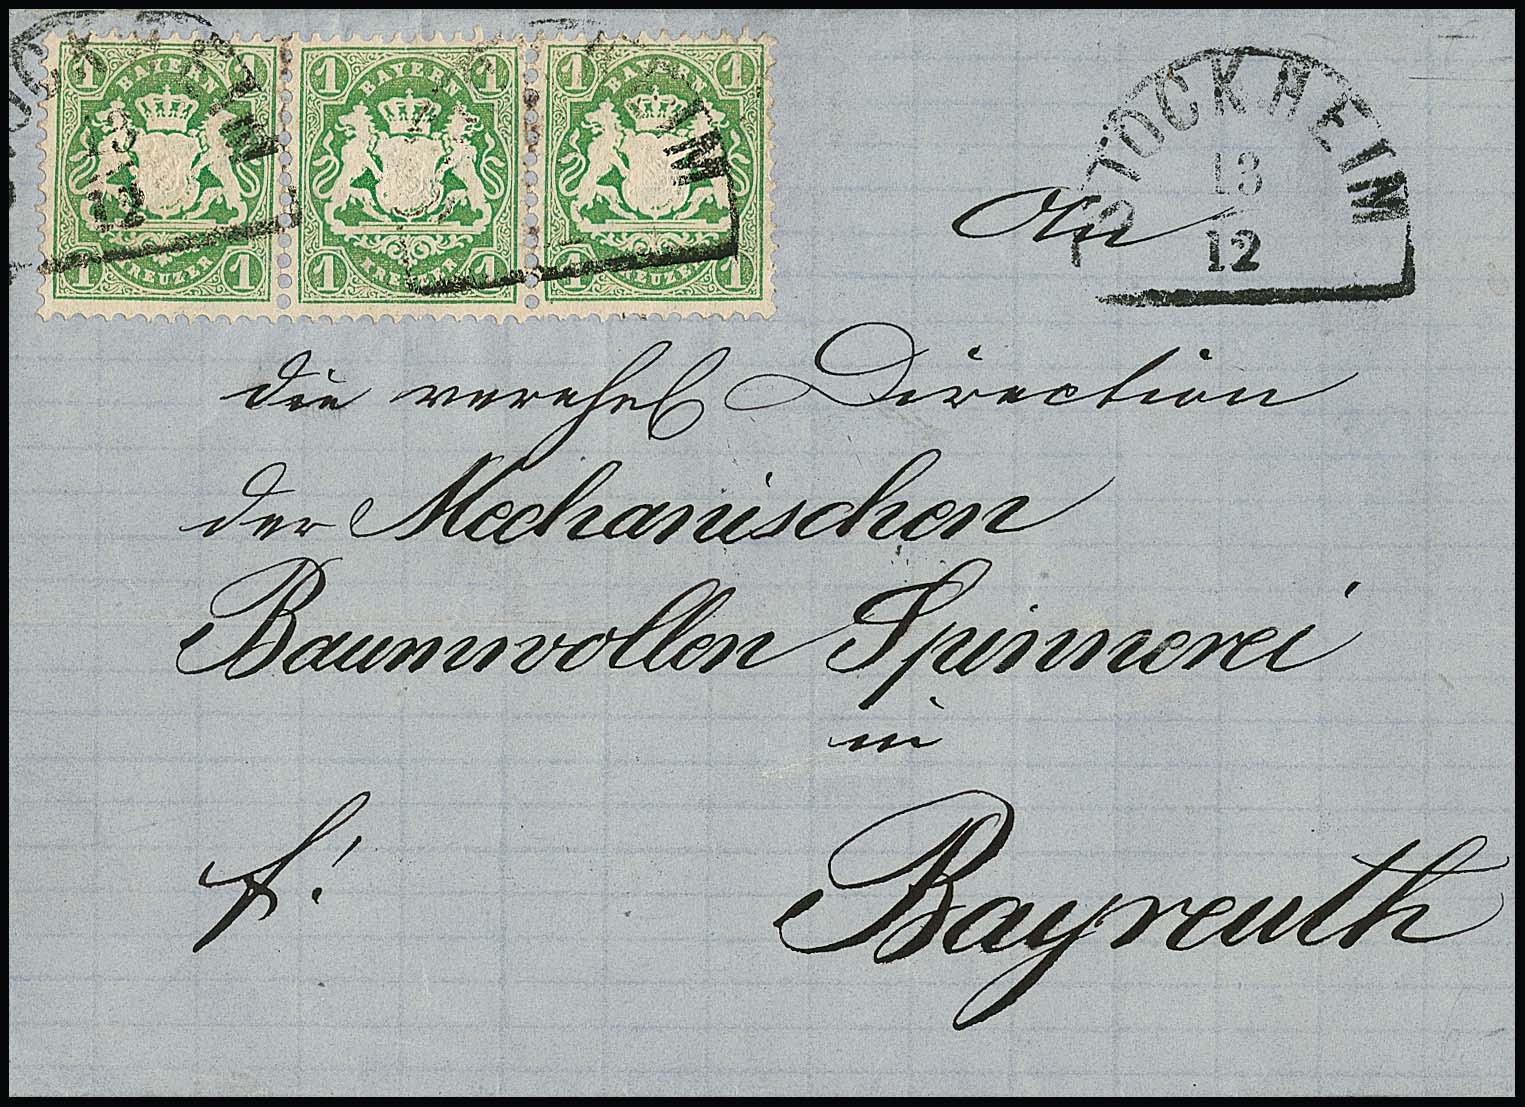 1 BAYERN 1 1 BAYERN 1 1 BAYERN 1
13
12
1 KREUZER 1 1 KREUZER 1 1 KREUZER 1
STOCKHEIM
13
12
An
die verehel Direction
der Mechanischen
Baumwollen Spinnerei
in
f!
Bayreuth